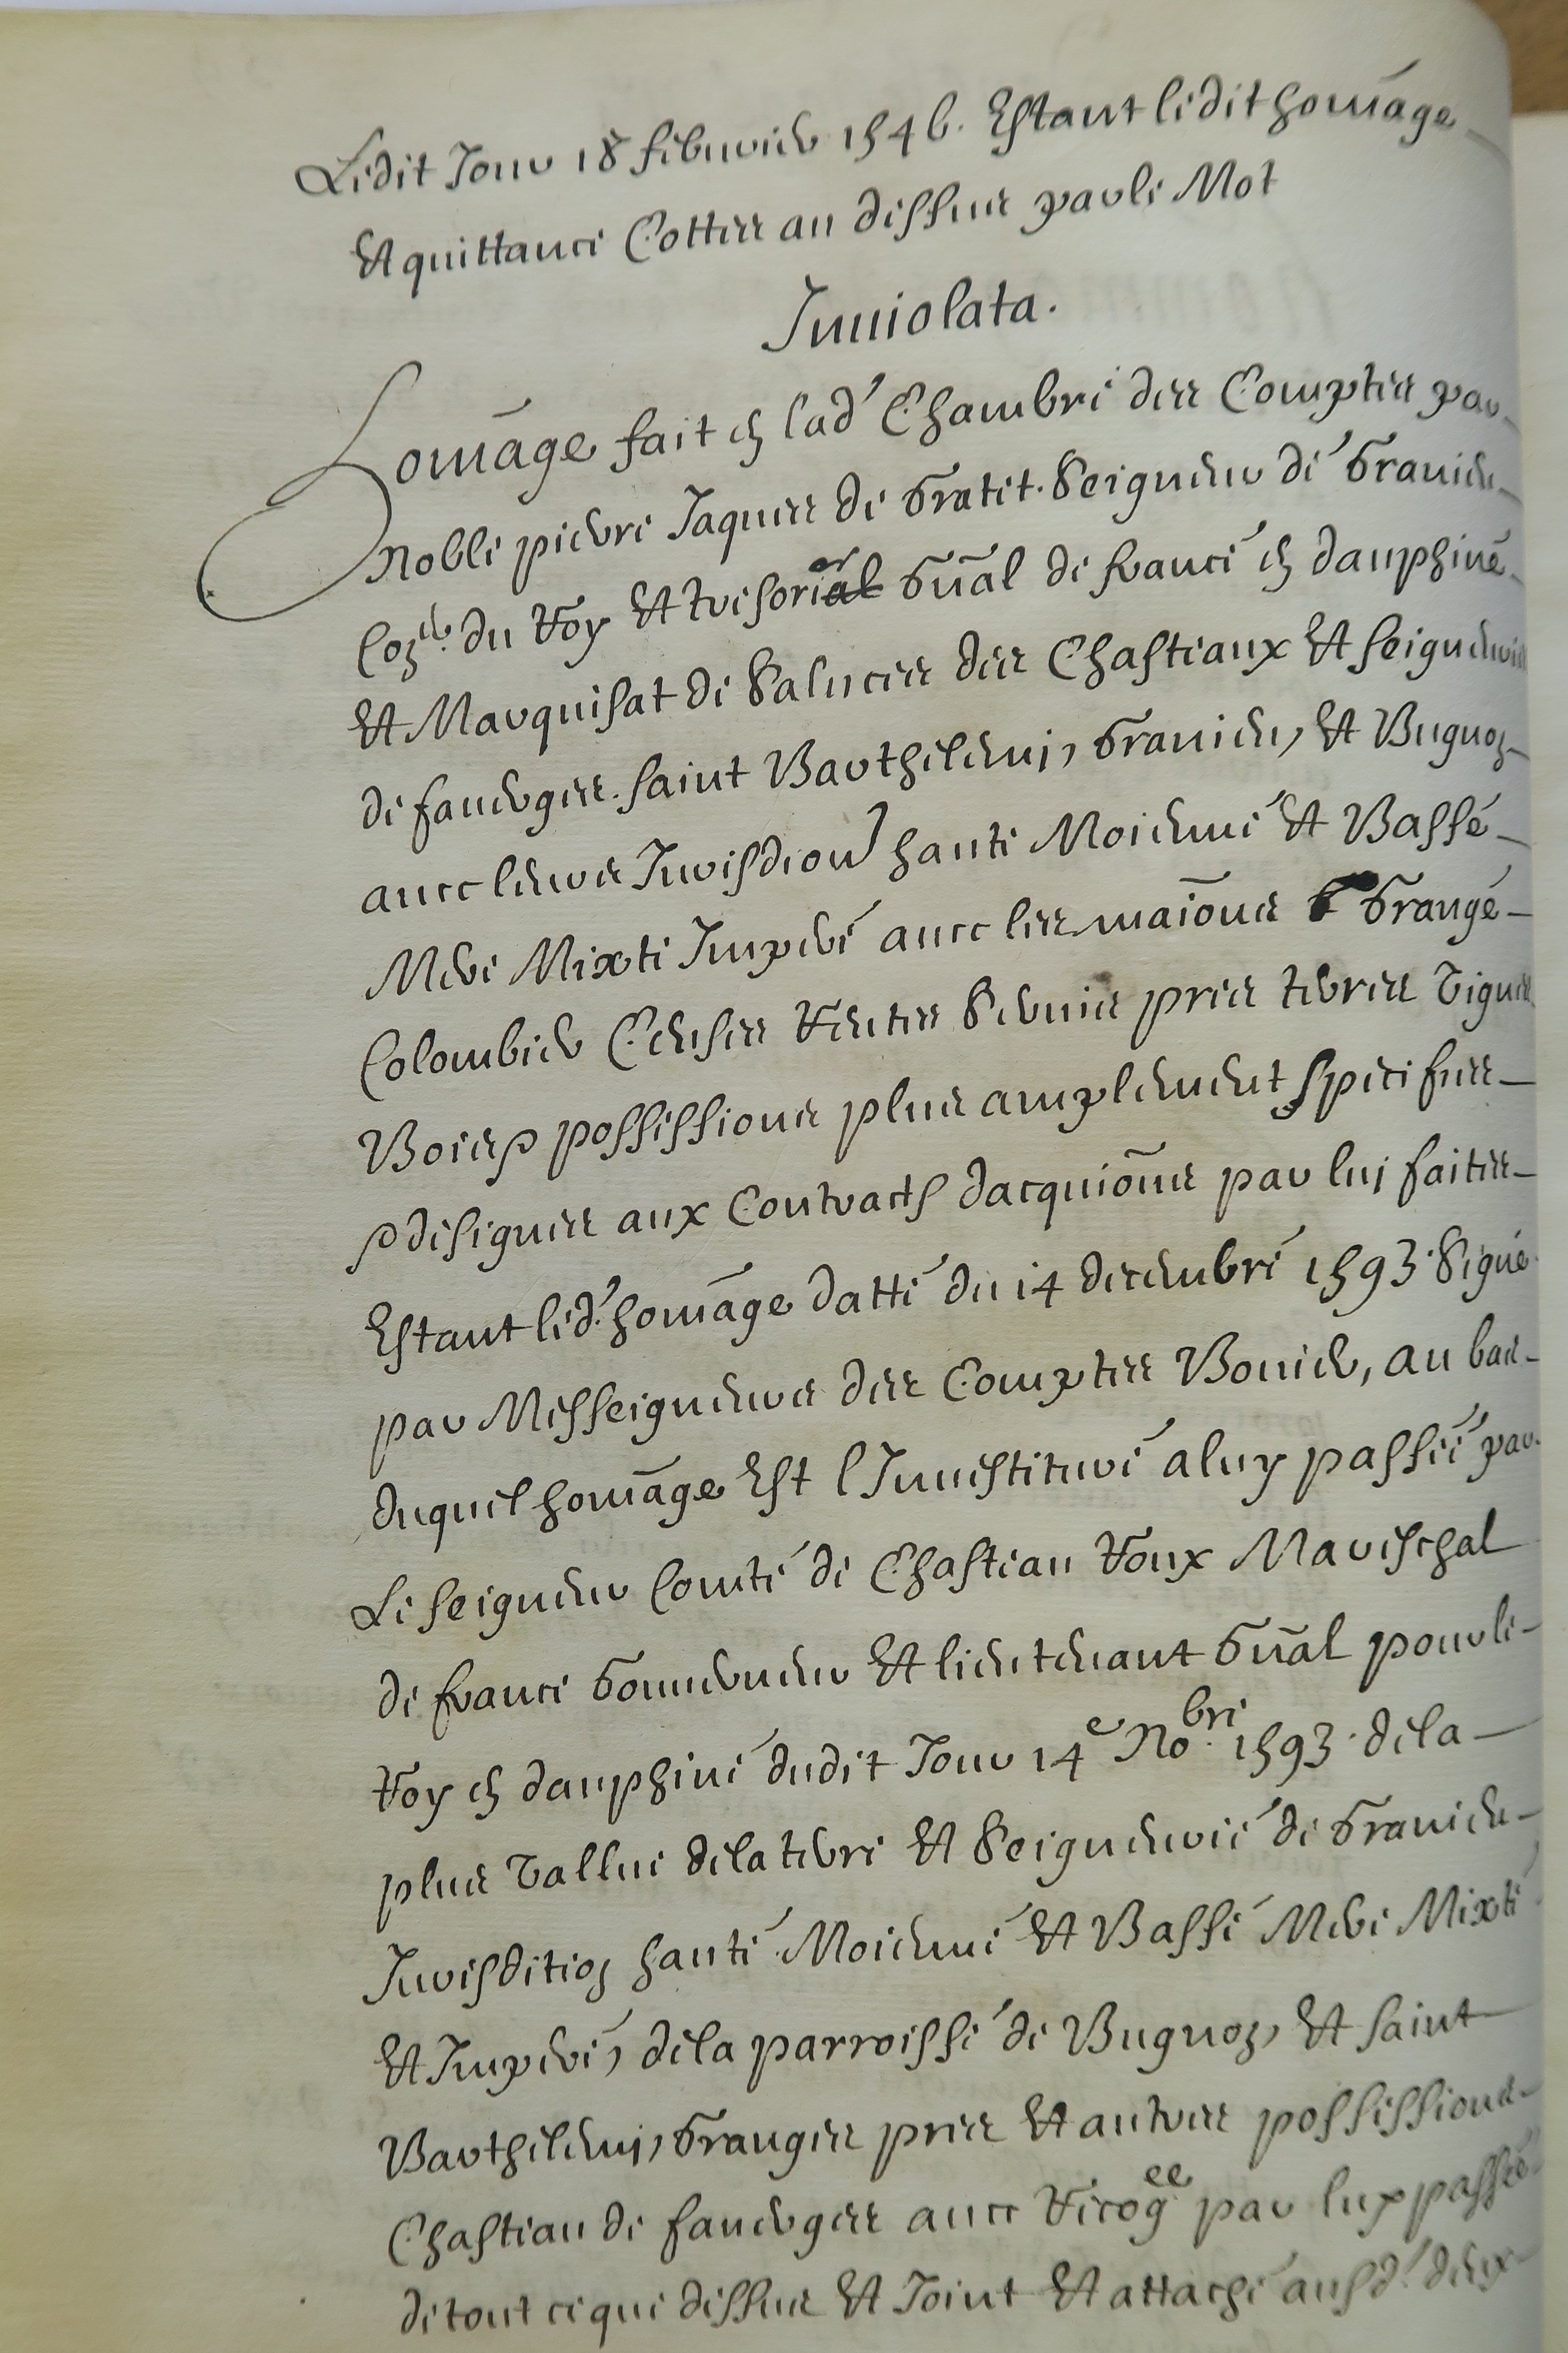 Ledit Jour 18 febvrier 1546. Estant ledit homage
Et quittance Cottes au dessus par le Mot
Inviolata.
Homage fait en lad' Chambre des Comptes par
noble pierre Jaques de Gratet. Seigneur de Granieu
Coner. du Roy Et tresorier gnal de france en dauphiné
Et Marquisat de Saluces des Chasteaux Et seigneuries
de faverges. saint Barthelemj, Granieu, Et Buguon
avec leurs Jurisdion haute Moienne Et Basse
Mere Mixte Impere avec les maions Grange
Colombier Censes Rentes Servis pres terres Vignes
Bois & possessions plus amplement speciffiees
& designees aux Contracts dacquions par luj faites
Estant led. homage datté du 14 decembre 1593. Signé
par Messeigneurs des Comptes Bonier, au bas
duquel homage Est l'Investiture a luy passée par
Le seigneur Comte de Chasteau Roux Mareschal
de france Gouverneur Et lieutenant Gnal pour le
Roy en dauphiné dudit Jour 14e Nobre. 1593. de la
plus Vallue de la terre Et Seigneurie de Granieu
Jurisdition haute Moienne Et Basse Mere Mixte
Et Impere, de la parroisse de Buguon, Et saint
Barthelemj, Granges pres Et autres possessions
Chasteau de faverges avec Recogee par luy passée
de tout ce que dessus Et Joint Et attaché ausd. deux